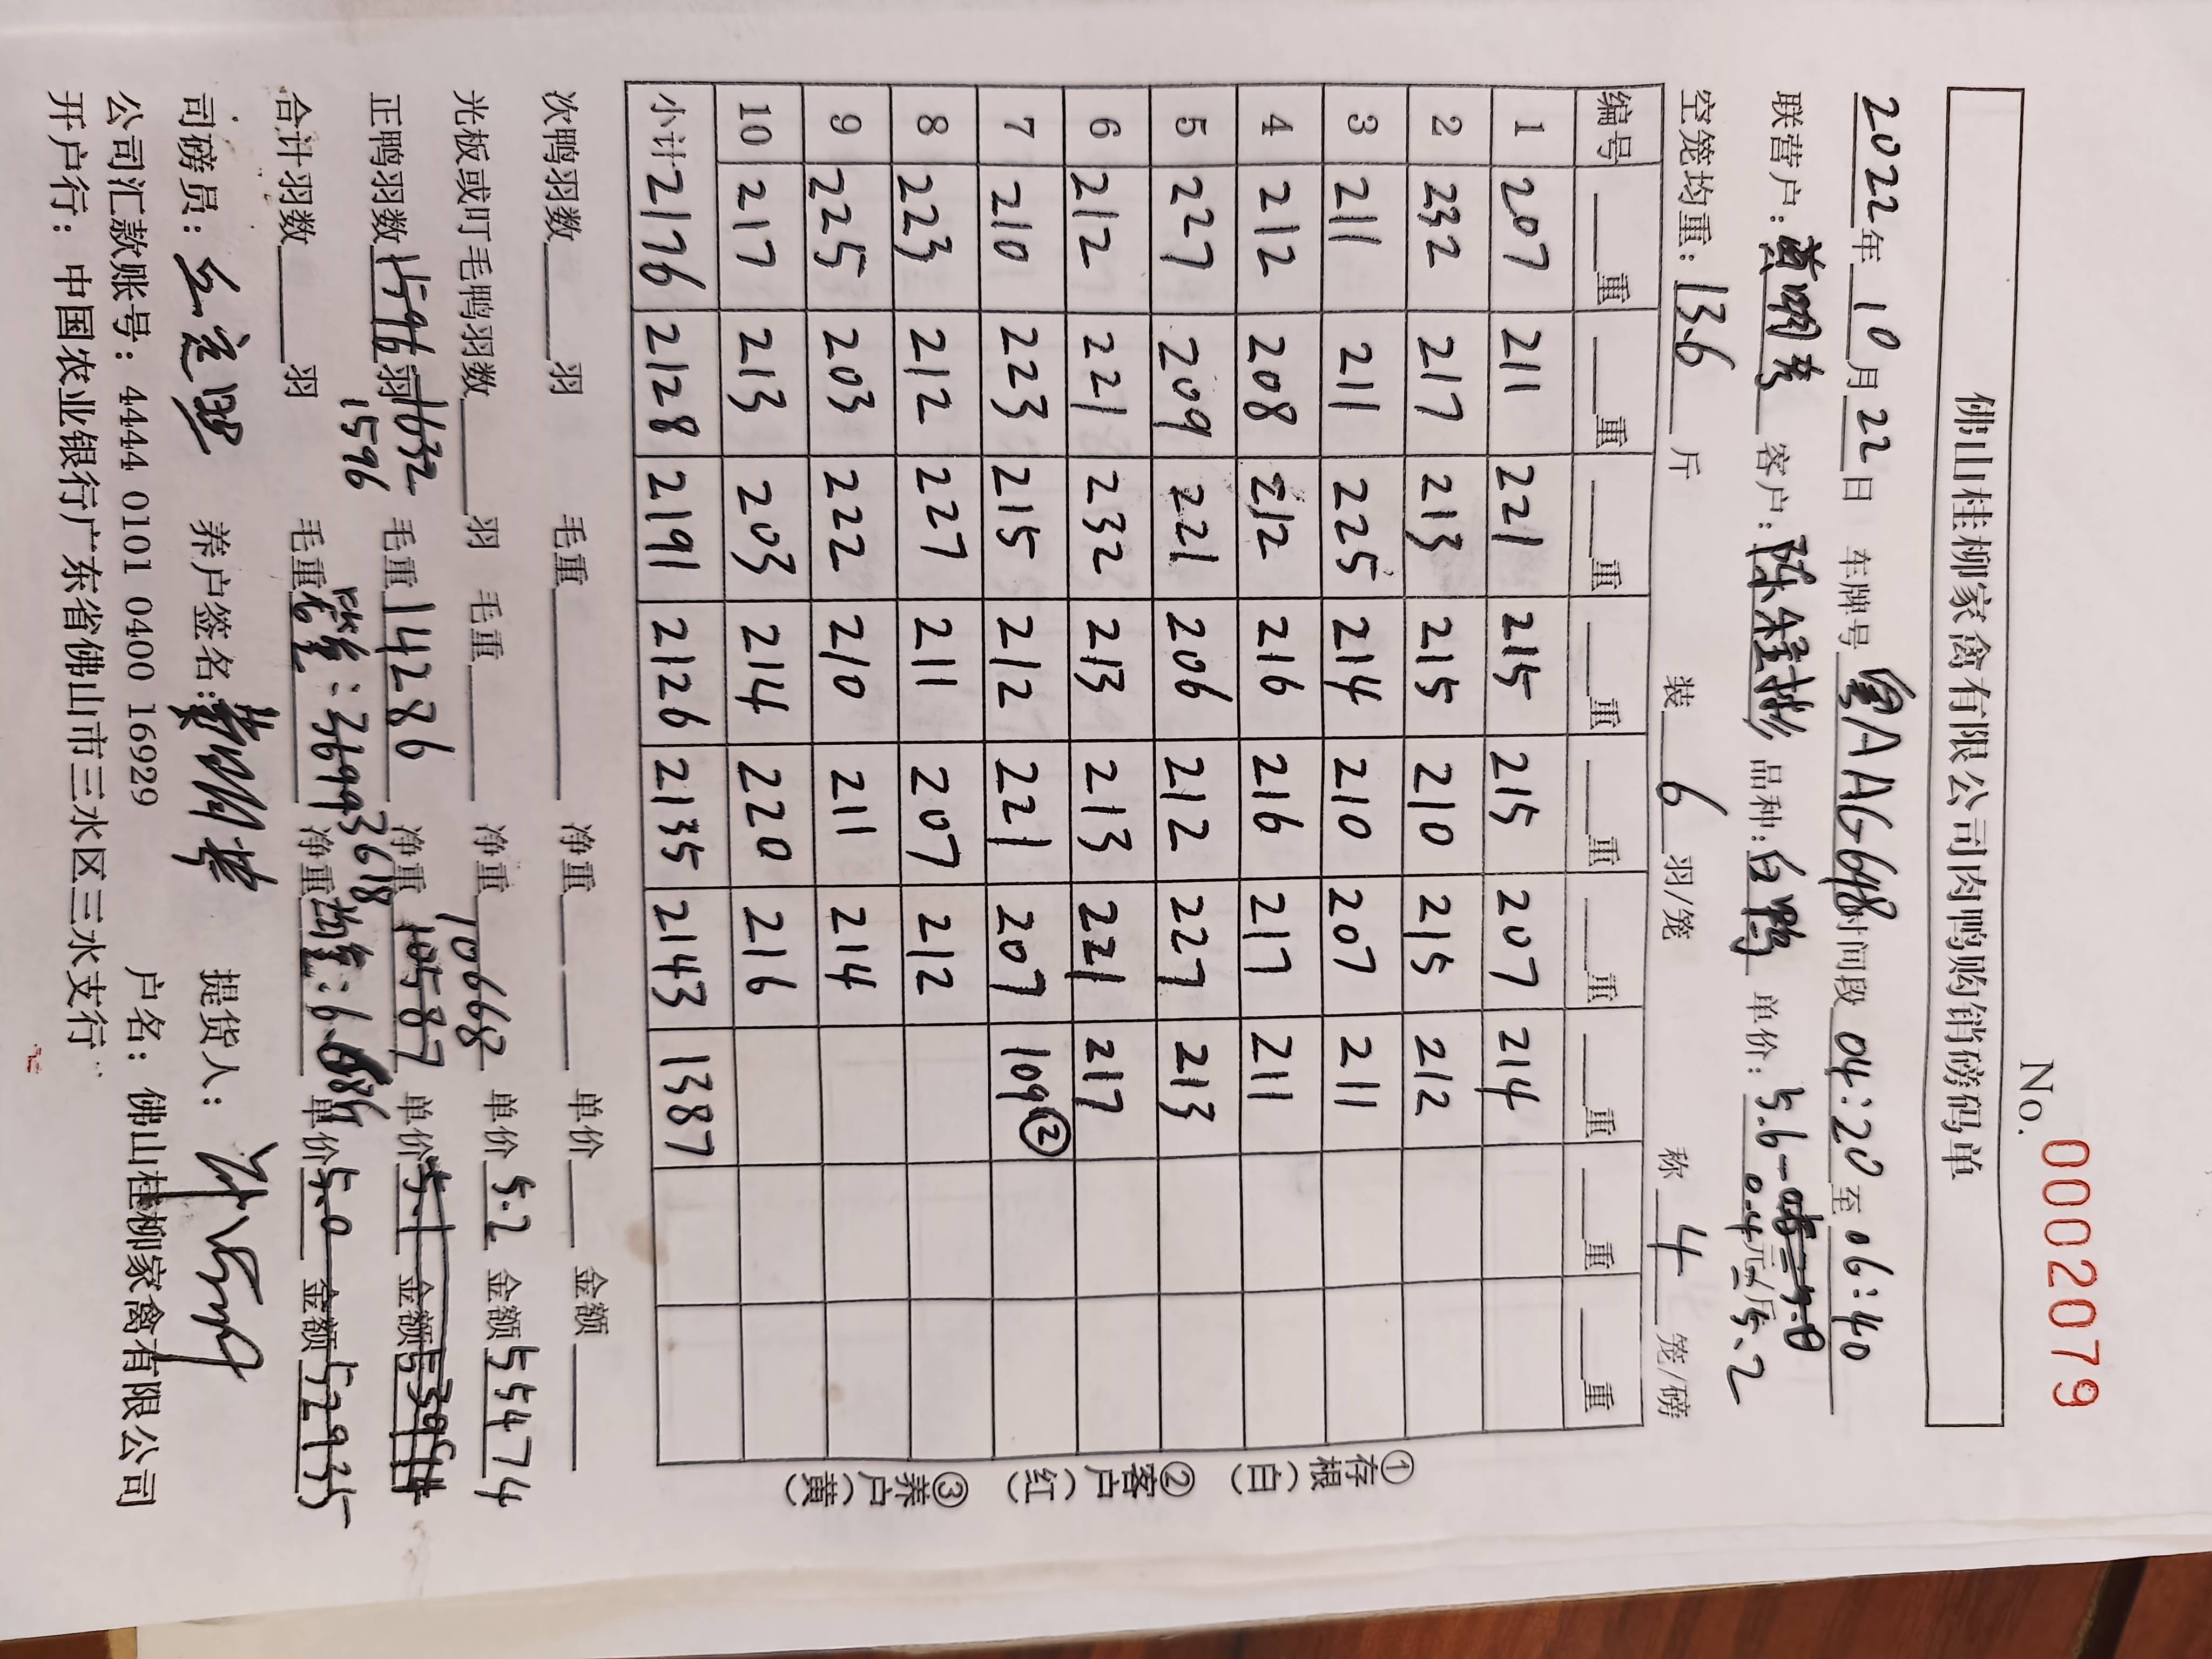 No. 0002079
佛山桂柳家禽有限公司肉鸭购销磅码单
2022年10月22日 车牌号 粤AAG648 时间段 04:20 至 06:40
联营户: 客户: 陈 彬 品种: 白鸭 单价: 5.6 0.4元/斤 5.2
空笼均重: 13.6 斤 装 6 羽/笼 称 4 笼/磅
编号 重 重 重 重 重 重 重 重 重
1 207 211 221 215 215 207 214
2 232 217 213 215 210 215 212
3 211 211 225 214 210 207 211
4 212 208 212 216 216 217 211
5 227 209 221 206 212 227 213
6 212 221 232 213 213 221 217
7 210 223 215 212 221 207 109②
8 223 212 227 211 207 212
9 225 203 222 210 211 214
10 217 213 203 214 220 216
小计 2176 2128 2191 2126 2135 2143 1387
①存根(白) ②客户(红) ③养户(黄)
次鸭羽数 羽 毛重 净重 单价 金额
光板或叮毛鸭羽数 羽 毛重 净重 10668 单价 5.2 金额 55474
正鸭羽数 1596 羽 1632 毛重 14286 净重 10587 单价 5.1 金额
1596 3618
合计羽数 羽 毛重 : 3699 净重 均重: 6. 单价 5.0 金额 52935
司磅员: 养户签名: 提货人:
公司汇款账号: 4444 0101 0400 16929 户名: 佛山桂柳家禽有限公司
开户行: 中国农业银行广东省佛山市三水区三水支行